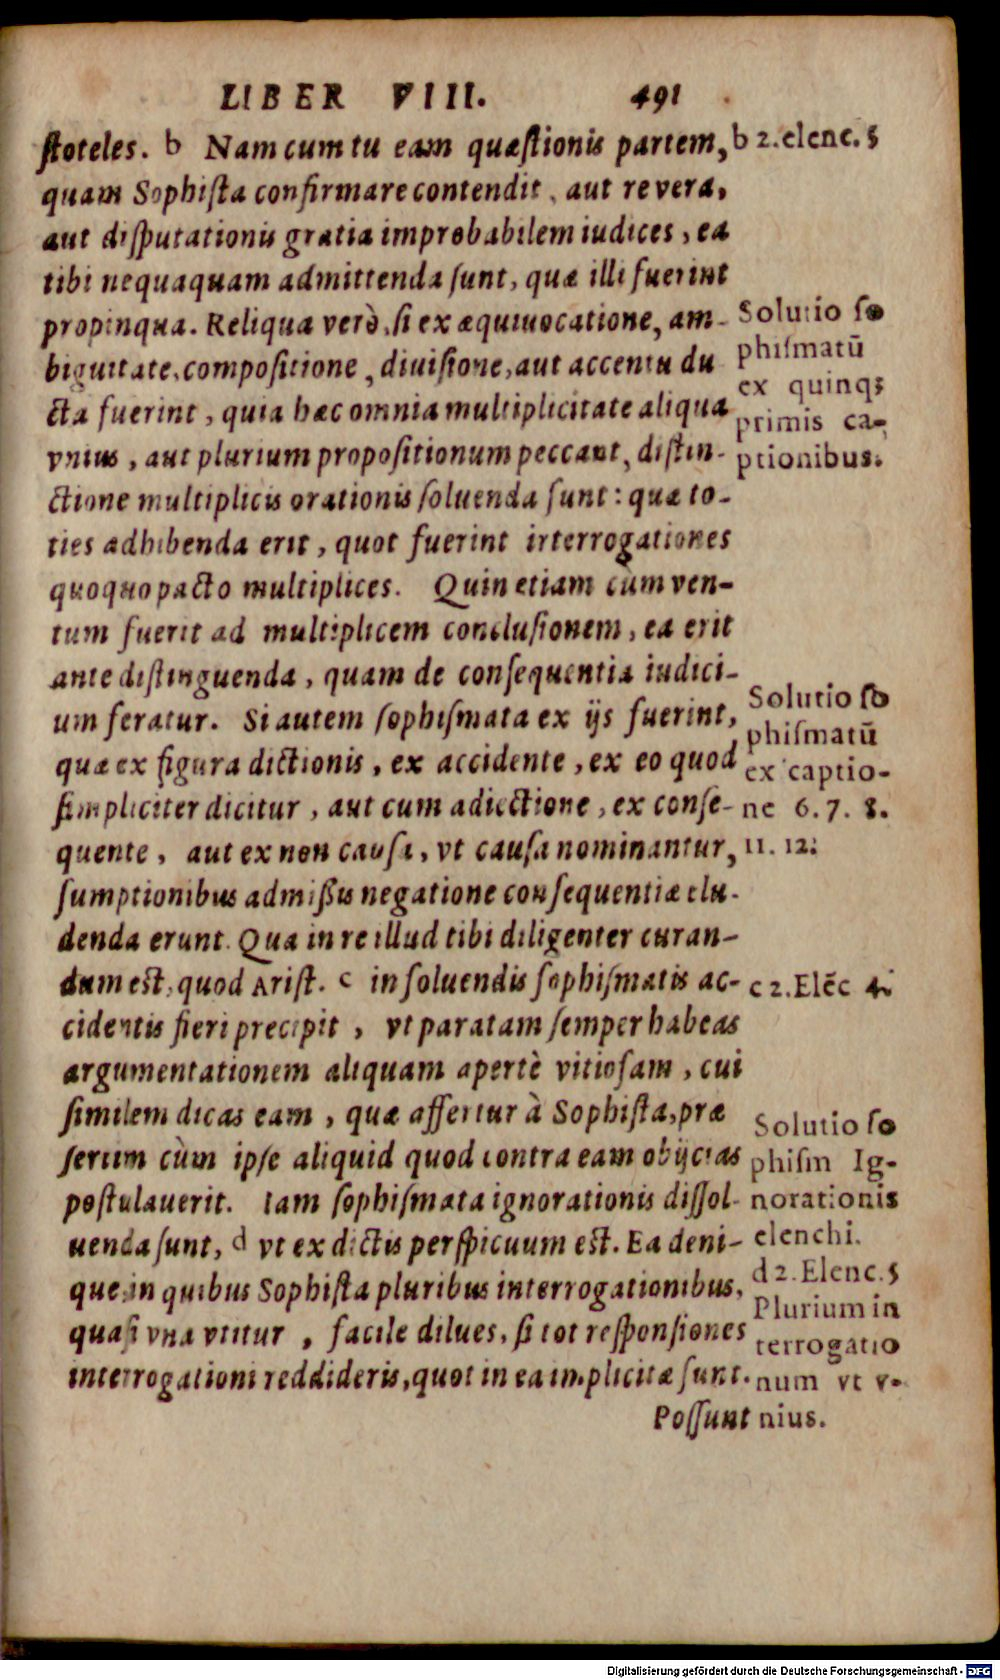 LIBER VIII. 491
ſtoteles. b Nam cum tu eam quæſtionis partem,
quam Sophiſta confirmare contendit, aut re vera,
aut diſputationis gratia improbabilem iudices, ea
tibi nequaquam admittenda ſunt, quæ illi fuerint
propinqua. Reliqua verò, ſi ex æquiuocatione, am-
biguitate, compoſitione, diuiſione, aut accentu du
cta fuerint, quia hæc omnia multiplicitate aliqua
vnius, aut plurium propoſitionum peccant, diſtin-
ctione multiplicis orationis ſoluenda ſunt: quæ to-
ties adhibenda erit, quot fuerint irterrogationes
quoquo pacto multiplices. Quin etiam cùm ven-
tum fuerit ad multiplicem concluſionem, ea erit
ante diſtinguenda, quam de conſequentia iudici-
um feratur. Si autem ſophiſmata ex ijs fuerint,
quæ ex figura dictionis, ex accidente, ex eo quod
ſimpliciter dicitur, aut cum adiectione, ex conſe-
quente, aut ex non cauſa, vt cauſa nominantur,
ſumptionibus admiſſis negatione conſequentiæ elu-
denda erunt. Qua in re illud tibi diligenter curan-
dum eſt, quod Ariſt. c in ſoluendis ſophiſmatis ac-
cidentis fieri precipit, vt paratam ſemper habeas
argumentationem aliquam apertè vitioſam, cui
ſimilem dicas eam, quæ affertur à Sophiſta, præ
ſertim cùm ipſe aliquid quod contra eam obijcias
poſtulauerit. Iam ſophiſmata ignorationis diſſol-
uenda ſunt, d vt ex dictis perſpicuum eſt. Ea deni-
que in quibus Sophiſta pluribus interrogationibus,
quaſi vna vtitur, facile dilues, ſi tot reſponſiones
interrogationi reddideris, quot in ea implicitæ ſunt.
Poſſunt
b 2. elenc. 5
Solutio ſo
phiſmatū
ex quinq;
primis ca-
ptionibus.
Solutio ſo
phiſmatū
ex captio-
ne 6. 7. 8.
11. 12.
c 2. Elēc 4.
Solutio ſo
phiſm Ig-
norationis
elenchi.
d 2. Elenc. 5
Plurium in
terrogatio
num vt v-
nius.
Digitalisierung gefördert durch die Deutsche Forschungsgemeinschaft - DFG